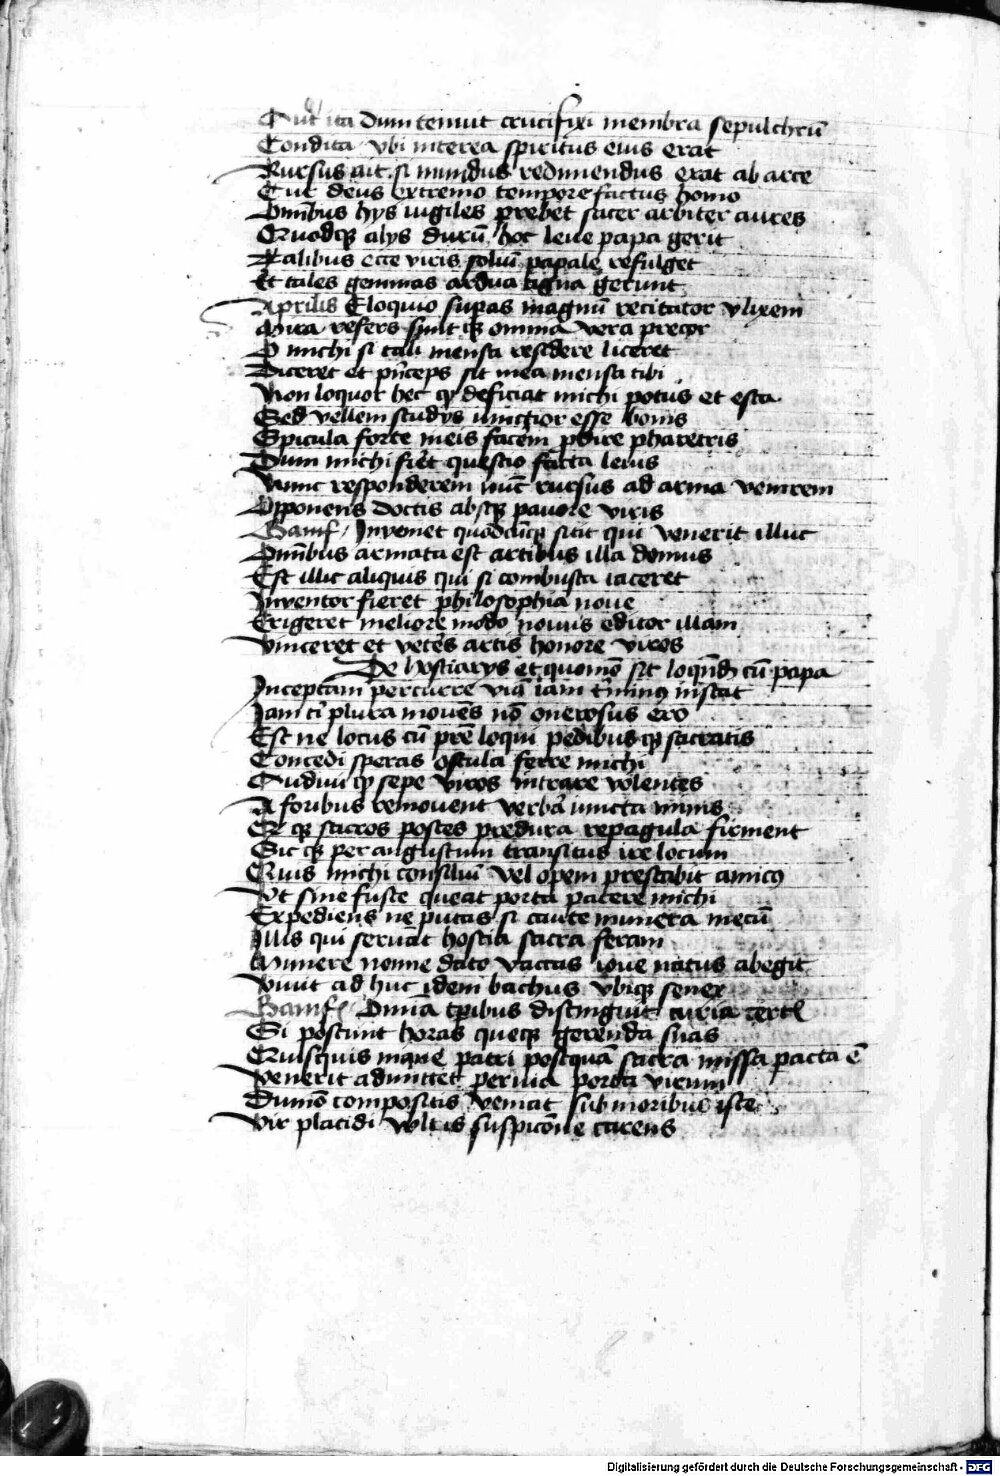 Cur ita dum tenuit crucifixi membra sepulchrū
Condita vbi interea spiritus eius erat
Rursus ait si mundus redimendus erat ab arce
Cur deus extremo tempore factus homo
Om̄ibus hys vigiles prebet sacer arbiter aures
Quodqꝫ alys durū hoc leue papa gerit
Talibus ecce viris soliū papale refulget
Et tales gemmas ardua tigna gerunt
Aprilis Eloquio supas magnū recitator vlixem
Mira refers sunt qꝫ omnia vera precor
O michi si tali mensa residere liceret
Diceret et p̄nceps sit mea mensa tibi
Non loquor hec qꝫ deficiat michi potus et esca
Sed vellem studys iunctior esse bonis
Spicula forte meis facem pdire pharetris
Dum michi fiet questio facta leuis
Nunc responderem nūc rursus ad arma venirem
Opponens doctis absqꝫ pauore viris
Gamf / Inveniet quodcūqꝫ sitit qui venerit illuc
Om̄ibus armata est artibus illa domus
Est illic aliquis qui si combusta iaceret
Inventor fieret philosophia noue
Erigeret meliore modo nouus editor illam
Vinceret et veteres artis honore viros
De hostiarys et quomō sit loquēd cū papa
Inceptam percurre viā iam t̄minus instat
Iam tī plura mouens nō onerosus ero
Est ne locus cū prē loqui pedibus qꝫ sacratis
Concedi speras oscula ferre michi
Audiui qꝫ sepe viros intrare volentes
A foribus remouent verba iuncta minis
Et qꝫ sacros postes predura repagula firment
Sic qꝫ per angustum transitus ire locum
Quis michi consiliū vel opem prestabit amicꝰ
Vt sine fuste queat porta patere michi
Expediens ne putas si caute munera mecū
Illis qui seruāt hostia sacra feram
Munere nonne dato vaccas ioue natus abegit
Viuit ad huc idem bachus vbiqꝫ senex
Gamf / Omnia tp̄ibus distinguit curia certis
Si poscunt horas queqꝫ gerenda suas
Quisquis mane patri postquā sacra missa pacta ē
Venerit admittet peruia porta virum
Dumō compositis veniat sub moribus iste
Vir placidi voltus suspicōne carens
Digitalisierung gefördert durch die Deutsche Forschungsgemeinschaft - DFG